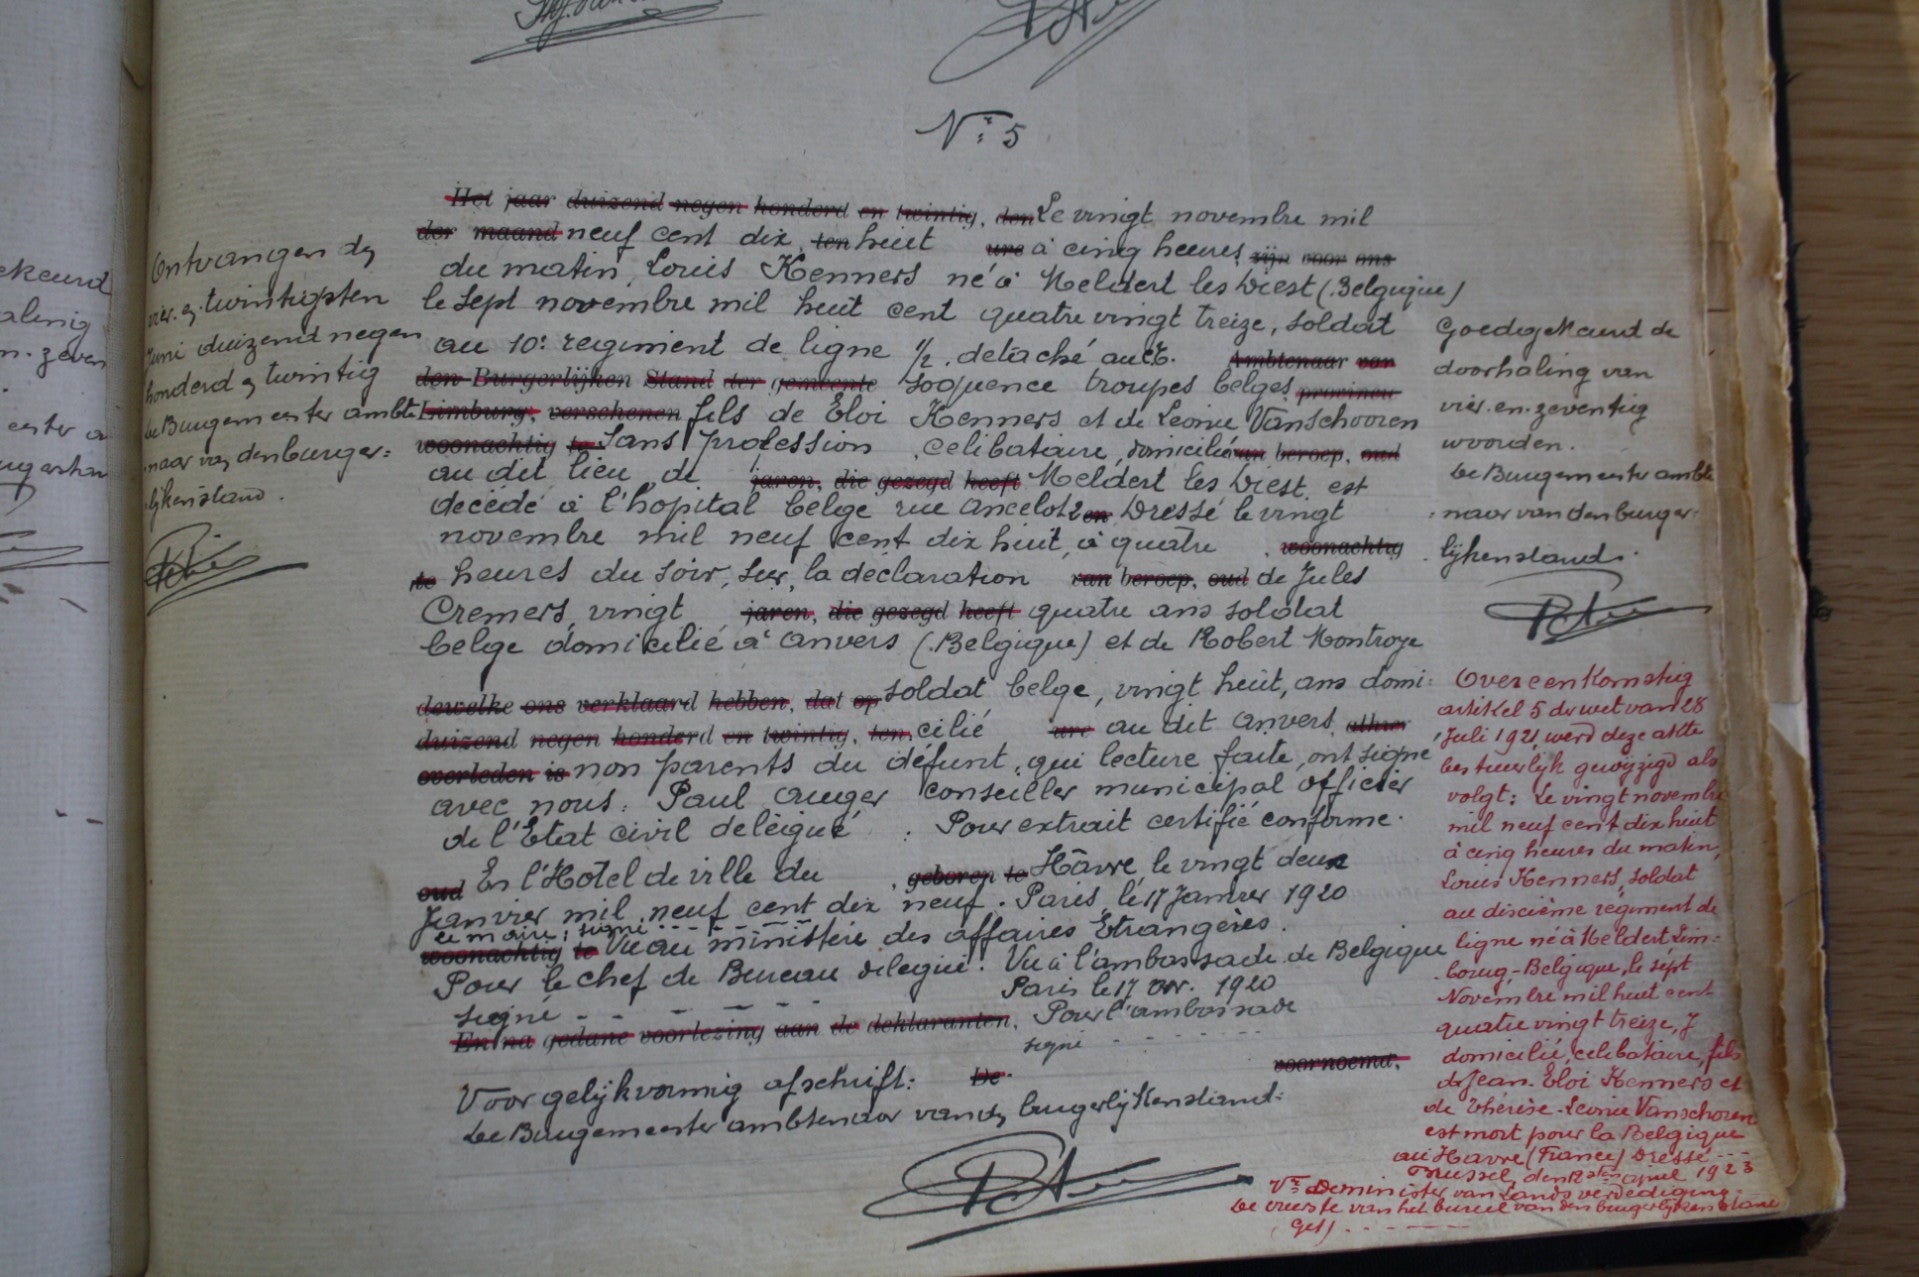 Nr 5
Het jaar duizend negen honderd en twintig, den Le vingt novembre mil
der maand neuf cent dix ten huit ure à cinq heures zijn voor ons
du matin, Louis Kenners né à Meldert les Diest (Belgique)
le sept novembre mil huit cent quatre vingt treize, soldat
au 10e regiment de ligne 1/2 detaché au Ambtenaar van
den Burgerlijken Stand der gemeente troupes belges provincie
Limburg, verschenen fils de Eloi Kenners et de Leonie Vanschooren
woonachtig te Sans profession celibataire, domicilié van beroep, oud
au dit lieu de jaren, die gezegd heeft Meldert les Diest est
décédé à l'hopital belge rue Ancelot 2 en Dressé le vingt
novembre mil neuf cent dix huit, à quatre woonachtig
te heures du soir, sur la déclaration van beroep, oud de Jules
Cremers, vingt jaren, die gezegd heeft quatre ans soldat
belge domicilié à anvers (Belgique) et de Robert Montroye
dewelke ons verklaard hebben, dat op soldat belge, vingt huit, ans domi-
duizend negen honderd en twintig, ten cilié ure au dit anvers, alhier
overleden is non parents du défunt, qui lecture faite, ont signé
avec nous: Paul Auger conseiller municipal officier
de l'Etat civil delégué Pour extrait certifié conforme.
oud En l'Hotel de ville du geboren te Hâvre, le vingt deux
Janvier mil neuf cent dix neuf. Paris, le 17 Janvier 1920
Le maire, signé - - - - - -
woonachtig te Vu au ministère des affaires Etrangères.
Pour le chef de Bureau delegué. Vu à l'ambassade de Belgique
signé - - - - Paris le 17 1920
Pour l'ambassade
En na gedane voorlezing aan de deklaranten,
signé - - -
voornoemd,
Voor gelijkvormig afschrift: De
De Burgemeester ambtenaar van den burgerlijkenstand:
Ontvangen den
vier en twintigsten
Juni duizend negen
honderd en twintig
De Burgemeester ambte
naar van den burger=
lijkenstand.
Goedgekeurd de
doorhaling van
vier en zeventig
woorden.
De Burgemeester ambte
naar van den burger=
lijkenstand.
Overeenkomstig
artikel 5 der wet van 28
Juli 1921, werd deze akte
bestuurlijk gewijzigd als
volgt: Le vingt novembre
mil neuf cent dix huit
à cinq heures du matin,
Louis Kenners, soldat
au dixième regiment de
ligne né à Meldert Lim=
bourg-Belgique, le sept
Novembre mil huit cent
quatre vingt treize, y
domicilié, celibataire, fils
de Jean-Eloi Kenners et
de Thérèse-Leonie Vanschooren
est mort pour la Belgique
au Havre (France) Dressé - - -
Brussel, den april 1923
Vr De minister van Lands verdediging:
De eerste van het bureel van den burgerlijkenstand
(Get) - - - - - -
ekeurd
aling
n-zeven